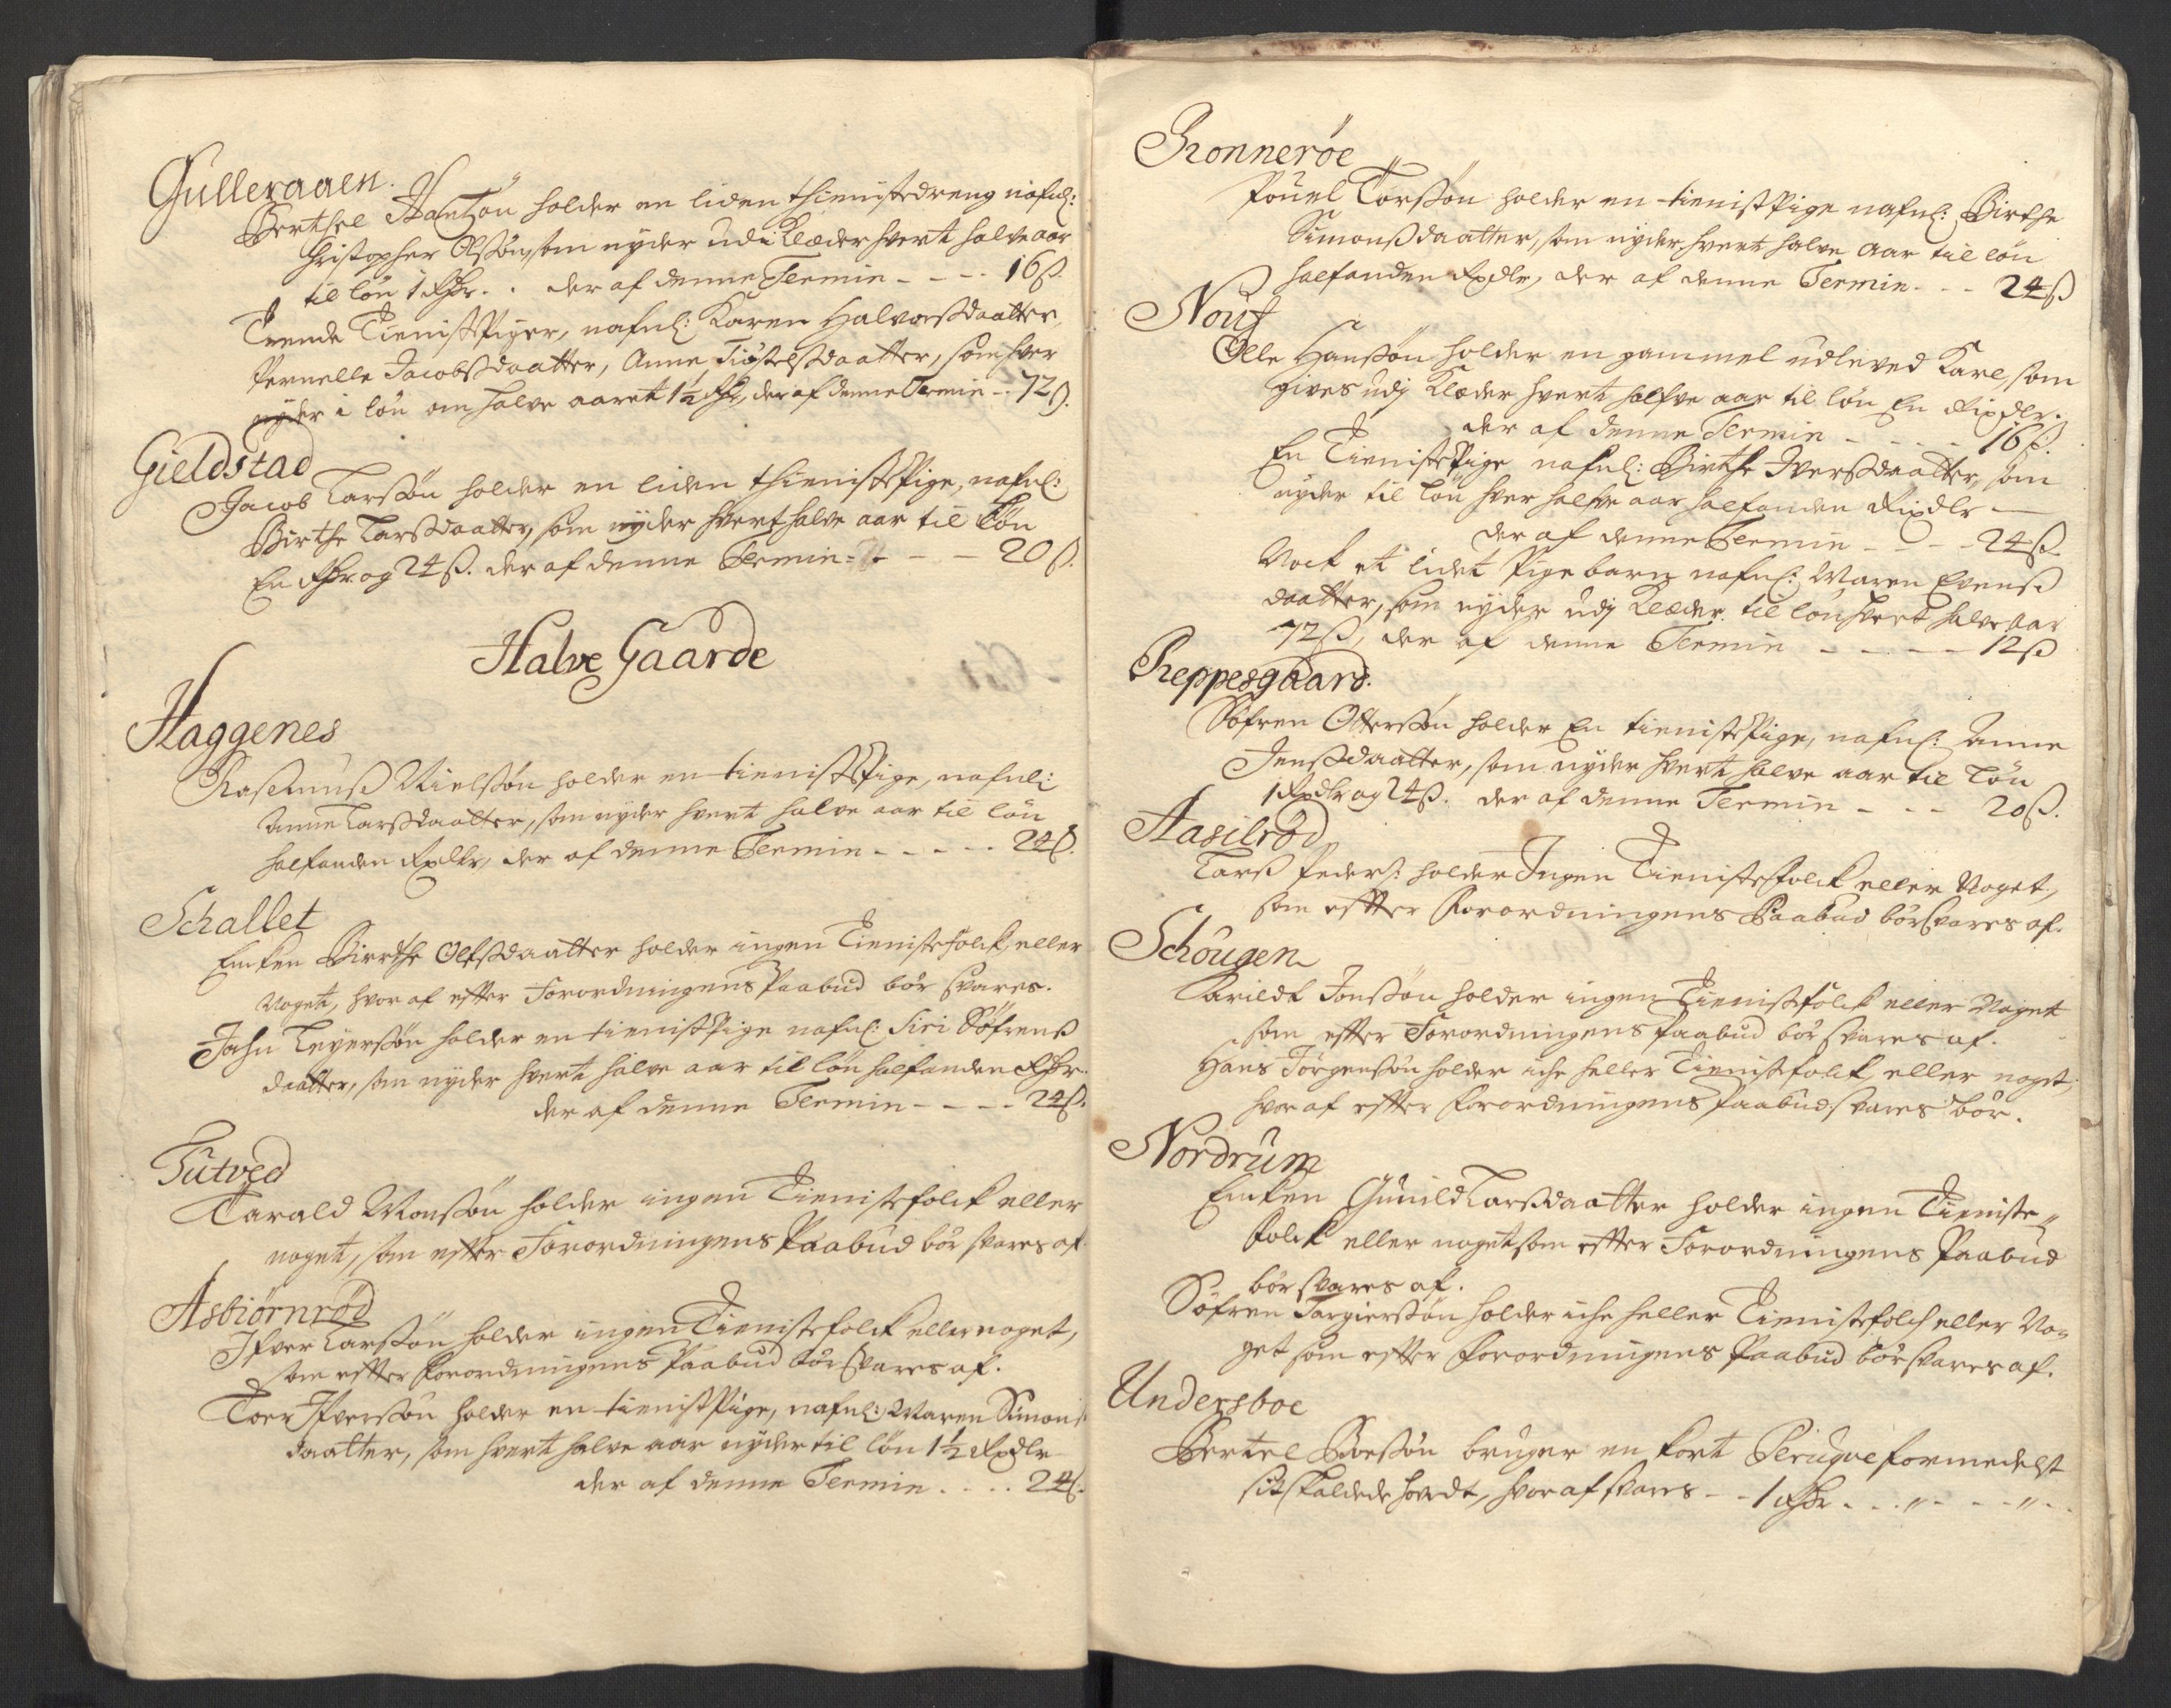 Gulleraaen.
Berthel Hantzøn holder en liden thienistedreng nafnl:
Christopher Olssøn, som nyder udi Klæder hvert halve aar
til løn 1 Rdr. . der af denne Termin - - - 16 ß.
Trende Tienist Piger, nafnl: Karen Halvorsdaatter,
Pernelle Jacobsdaatter, Anne Kiøstelsdaatter, som hver
nyder i løn om halve aaret 1½ Rdr, der af denne Termin - 72 ß.
Gieldstad
Jacob Larssøn holder en liden thieniste Pige, nafnl:
Birthe Larsdaatter, som nyder hvert halve aar til Løn
En Rdr og 24 ß. der af denne Termin - - - 20 ß.
Halve Gaarde
Haggenes
Rasmus Nielssøn holder en tieniste Pige, nafnl:
Anne Larsdaatter, som nyder hvert halve aar til løn
halfanden Rixdlr, der af denne Termin - - - - - 24 ß.
Schallet
Encken Birthe Olfsdaatter holder ingen Tienistefolck, eller
Noget, hvor af efter Forordningens Paabud bør svares.
Jahn Leyerssøn holder en tienist Pige nafnl: Siri Søfrens
daatter, som nyder hvert halve aar til løn halfanden Rdr.
der af denne Termin - - - - 24 ß.
Tutved
Tarald Monssøn holder ingen Tienistefolck eller
noget, som efter Forordningens Paabud bør svares af.
Asbiørnrød
Ifver Larssøn holder ingen Tienistefolck eller noget,
som efter Forordningens Paabud bør svares af.
Toer Ifverssøn holder en tienist Pige, nafnl: Maren Simons
daatter, som hvert halve aar nyder til løn 1½ Rixdlr
der af denne Termin . . . . 24 ß.
Ronnerøe
Pouel Torssøn holder en tienist Pige nafnl: Birthe
Simonsdaatter, som nyder hvert halve Aar til løn
halfanden Rixdlr, der af denne Termin - - - 24 ß
Nouf
Olle Hanssøn holder en gammel udleved Karl, som
gives udj Klæder hvert halfve aar til løn En Rixdlr.
der af denne Termin - - - - 16 ß.
En Tieniste Pige nafnl: Birthe Iversdaatter, som
nyder til løn hver halfve aar halfanden Rixdlr -
der af denne Termin - - - 24 ß.
Nock et lidet Pige barn nafnl: Maren Evens
daatter, som nyder udj Klæder til løn hvert halve aar
72 ß, der af denne Termin - - - - - 12 ß
Reppesgaard.
Søfren Olverssøn holder En tieniste Pige, nafnl: Anne
Jensdaatter, som nyder hvert halve aar til Løn
1 Rixdlr og 24 ß. der af denne Termin - - - 20 ß.
Aasilrød
Lars Peders: holder Ingen Tienistefolck eller Noget,
som effter Forordningens Paabud bør svares af.
Schougen
Tarildt Jonssøn holder ingen Tienistfolck eller Noget
som effter Forordningens Paabud bør svares af.
Hans Jørgenssøn holder iche heller Tienistefolck eller noget,
hvor af effter Forordningens Paabud svares bør.
Nordrum
Encken Gunild Larsdaatter holder ingen Tieniste-
folck eller noget som effter Forordningens Paabud
bør svares af.
Søfren Torgierssøn holder iche heller Tienistefolch eller No-
get som effter Forordningens Paabud bør svares af.
Undersboe
Bertel Boessøn bruger en kort Peruque formedelst
sit skaldede hovedt, hvor af svares - - 1 Rdr - - . " - - - " - -